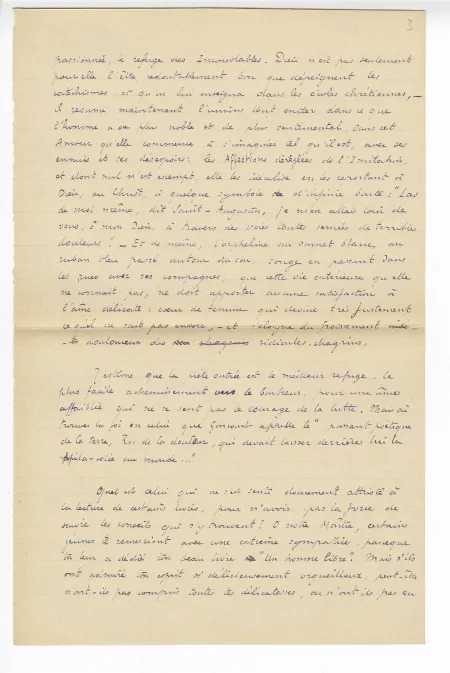 3
passionné, le refuge des Inconsolables. Dieu n'est pas seulement
pour elle l'être redoutablement bon que dépeignent les
catéchismes, et qu'on lui enseigna dans les écoles chrétiennes, —
Il résume maintenant l'univers tout entier dans ce que
l'homme a de plus noble et de plus sentimental, dans cet
Amour qu'elle commence à s'imaginer tel qu'il est, avec ses
ennuis et ses désespoirs: les Affections déréglées de l'Imitation,
et dont nul n'est exempt, elle les idéalise en les reportant à
Dieu, au Christ, à quelque symbole d'infinie bonté: "Las
de moi-même, dit Saint-Augustin, je m'en allais loin de
vous, ô mon Dieu, à travers des voies toutes semées de terribles
douleurs!" — Et de même, l'orpheline au bonnet blanc, au
ruban bleu passé autour du cou, songe en passant dans
les rues avec ses compagnes, que cette vie extérieure qu'elle
ne connait pas, ne doit apporter aucune satisfaction à
l'âme délicate: cœur de femme qui devine très justement
ce qu'il ne sait pas encore, — et s'éloigne du froissement
douloureux des ridicules chagrins.
J'estime que la piété outrée est le meilleur refuge, le
plus facile acheminement vers le bonheur, pour une âme
affaiblie qui ne se sent pas le courage de la lutte. Mais où
trouver la foi en celui que Goncourt appelle le "passant poétique
de la terre, Roi de la douleur, qui devait laisser derrière lui la
Mélancolie au monde..."
Quel est celui qui ne s'est senti doucement attristé à
la lecture de certains livres, pour n'avoir pas la force de
suivre les conseils qui s'y trouvent! O notre Maître, certains
jeunes te remercient avec une extrême sympathie, parce que
tu leur a dédié ton beau livre "Un homme libre". Mais s'ils
ont admiré ton esprit si délicieusement orgueilleux, peut-être
n'ont-ils pas compris toutes tes délicatesses, ou n'ont-ils pas eu